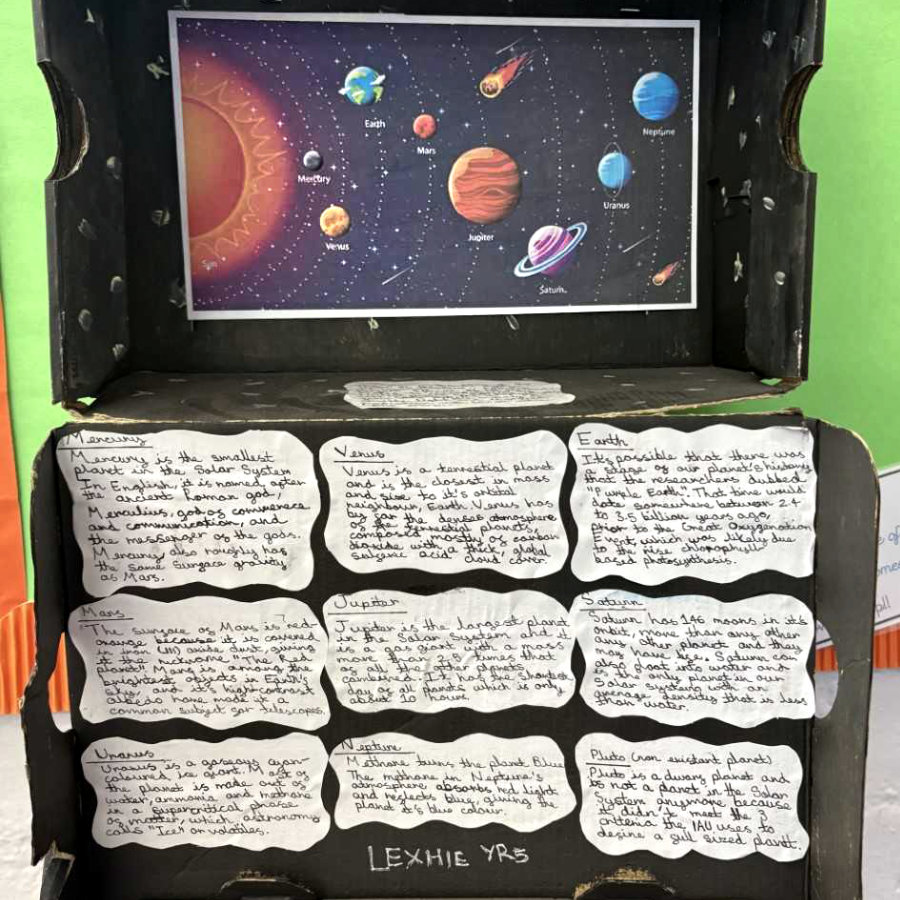 Earth
Neptune
Mars
Mercury
Uranus
Venus
Jupiter
Sun
Saturn
Mercury
Mercury is the smallest
planet in the Solar System
In English, it is named after
the ancient Roman god,
Merculius, god of commerece
and communication, and
the messenger of the gods.
Mercury also roughly has
the same surface gravity
as Mars.
Venus
Venus is a terrestial planet
and is the closest in mass
and size to it's orbital
neighbour, Earth. Venus has
by far the densest atmosphere
of the terrestial planets,
composed mostly of carbon
dioxide with a thick, global
sulferic acid cloud cover.
Earth
It's possible that there was
a stage of our planet's history
that the researchers dubbed
"Purple Earth". That time would
date somewhere between 2.4
to 3.5 billion years ago,
prior to the Great Oxygenation
Event, which was likely due
to the rise chlorophyll-
based photosythesis.
Mars
The surface of Mars is red-
orange because it is covered
in iron (III) oxide dust, giving
it the nickname "The Red
planet". Mars is among the
brightest objects in Earth's
sky, and it's high-contrast
albedo have made it a
common subject for telescopes.
Jupiter
Jupiter is the largest planet
in the Solar System and it
is a gas giant with a mass
more than 2.5 times that
of all the other planets
combined. It has the shortest
day of all planets which is only
about 10 hours.
Saturn
Saturn has 146 moons in it's
orbit, more than any other
any other planet and they
may have life. Saturn can
also float into water and
is the only planet in our
Solar System with an
average density that is less
than water.
Uranus
Uranus is a gaseous cyan-
coloured ice giant. Most of
the planet is made out of
water, ammonia and methane
in a supercritical phase
of matter, which astronomy
calls "Ice" or volatiles.
Neptune
Methane turns the planet Blue
The methane in Neptune's
atmosphere absorbs red light
and reflects blue, giving the
planet it's blue colour.
Pluto (non existent planet)
Pluto is a dwarf planet and
is not a planet in the Solar
System anymore because
it didn't meet the 3
criteria the IAU uses to
desine a full sized planet.
LEXHIE YR5